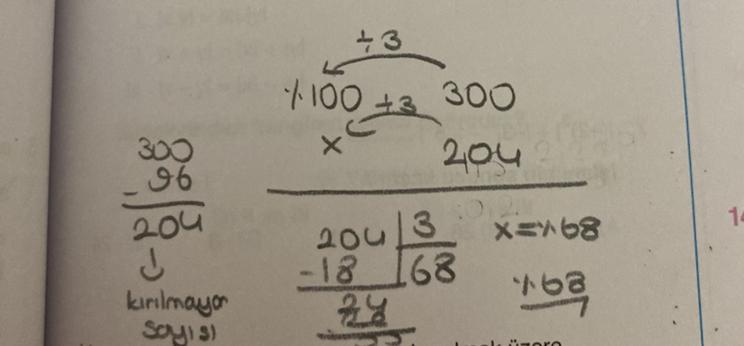 ÷3
%100 ÷3 300
x 204
300
- 96
204
kırılmayan
sayısı
204 | 3
- 18 | 68
24
x = %68
%68
14